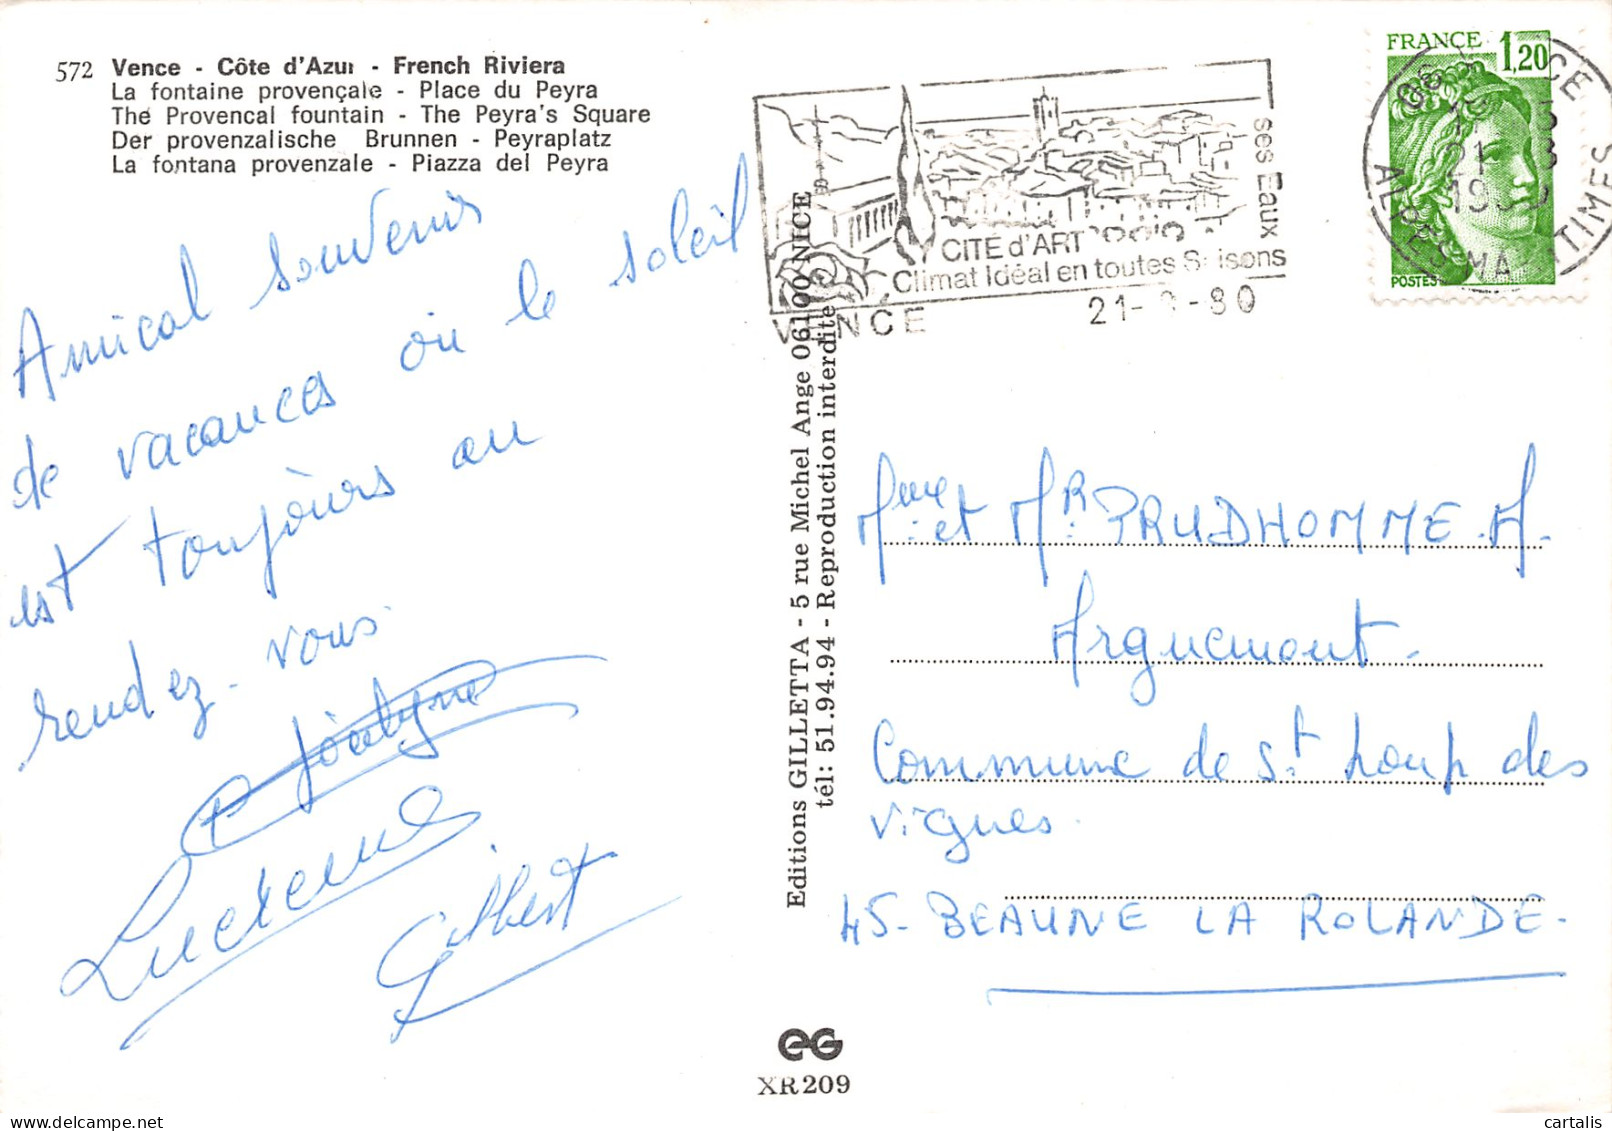 572 Vence - Côte d'Azur - French Riviera
La fontaine provençale - Place du Peyra
The Provencal fountain - The Peyra's Square
Der provenzalische Brunnen - Peyraplatz
La fontana provenzale - Piazza del Peyra
Amical souvenir
de vacances où le soleil
est toujours au
rendez-vous
Jocelyne
Lucienne
Gilbert
Editions GILLETTA - 5 rue Michel Ange 06100 NICE
tél: 51.94.94 - Reproduction interdite
ses Eaux
CITÉ d'ART
Climat Idéal en toutes Saisons
VENCE
21- -80
FRANCE 1,20
POSTES
ALPES MARITIMES
Mme et Mr PRUDHOMME A.
Arguemont.
Commune de St Loup des
Vignes.
45- BEAUNE LA ROLANDE-
eG
XR209
cartalis